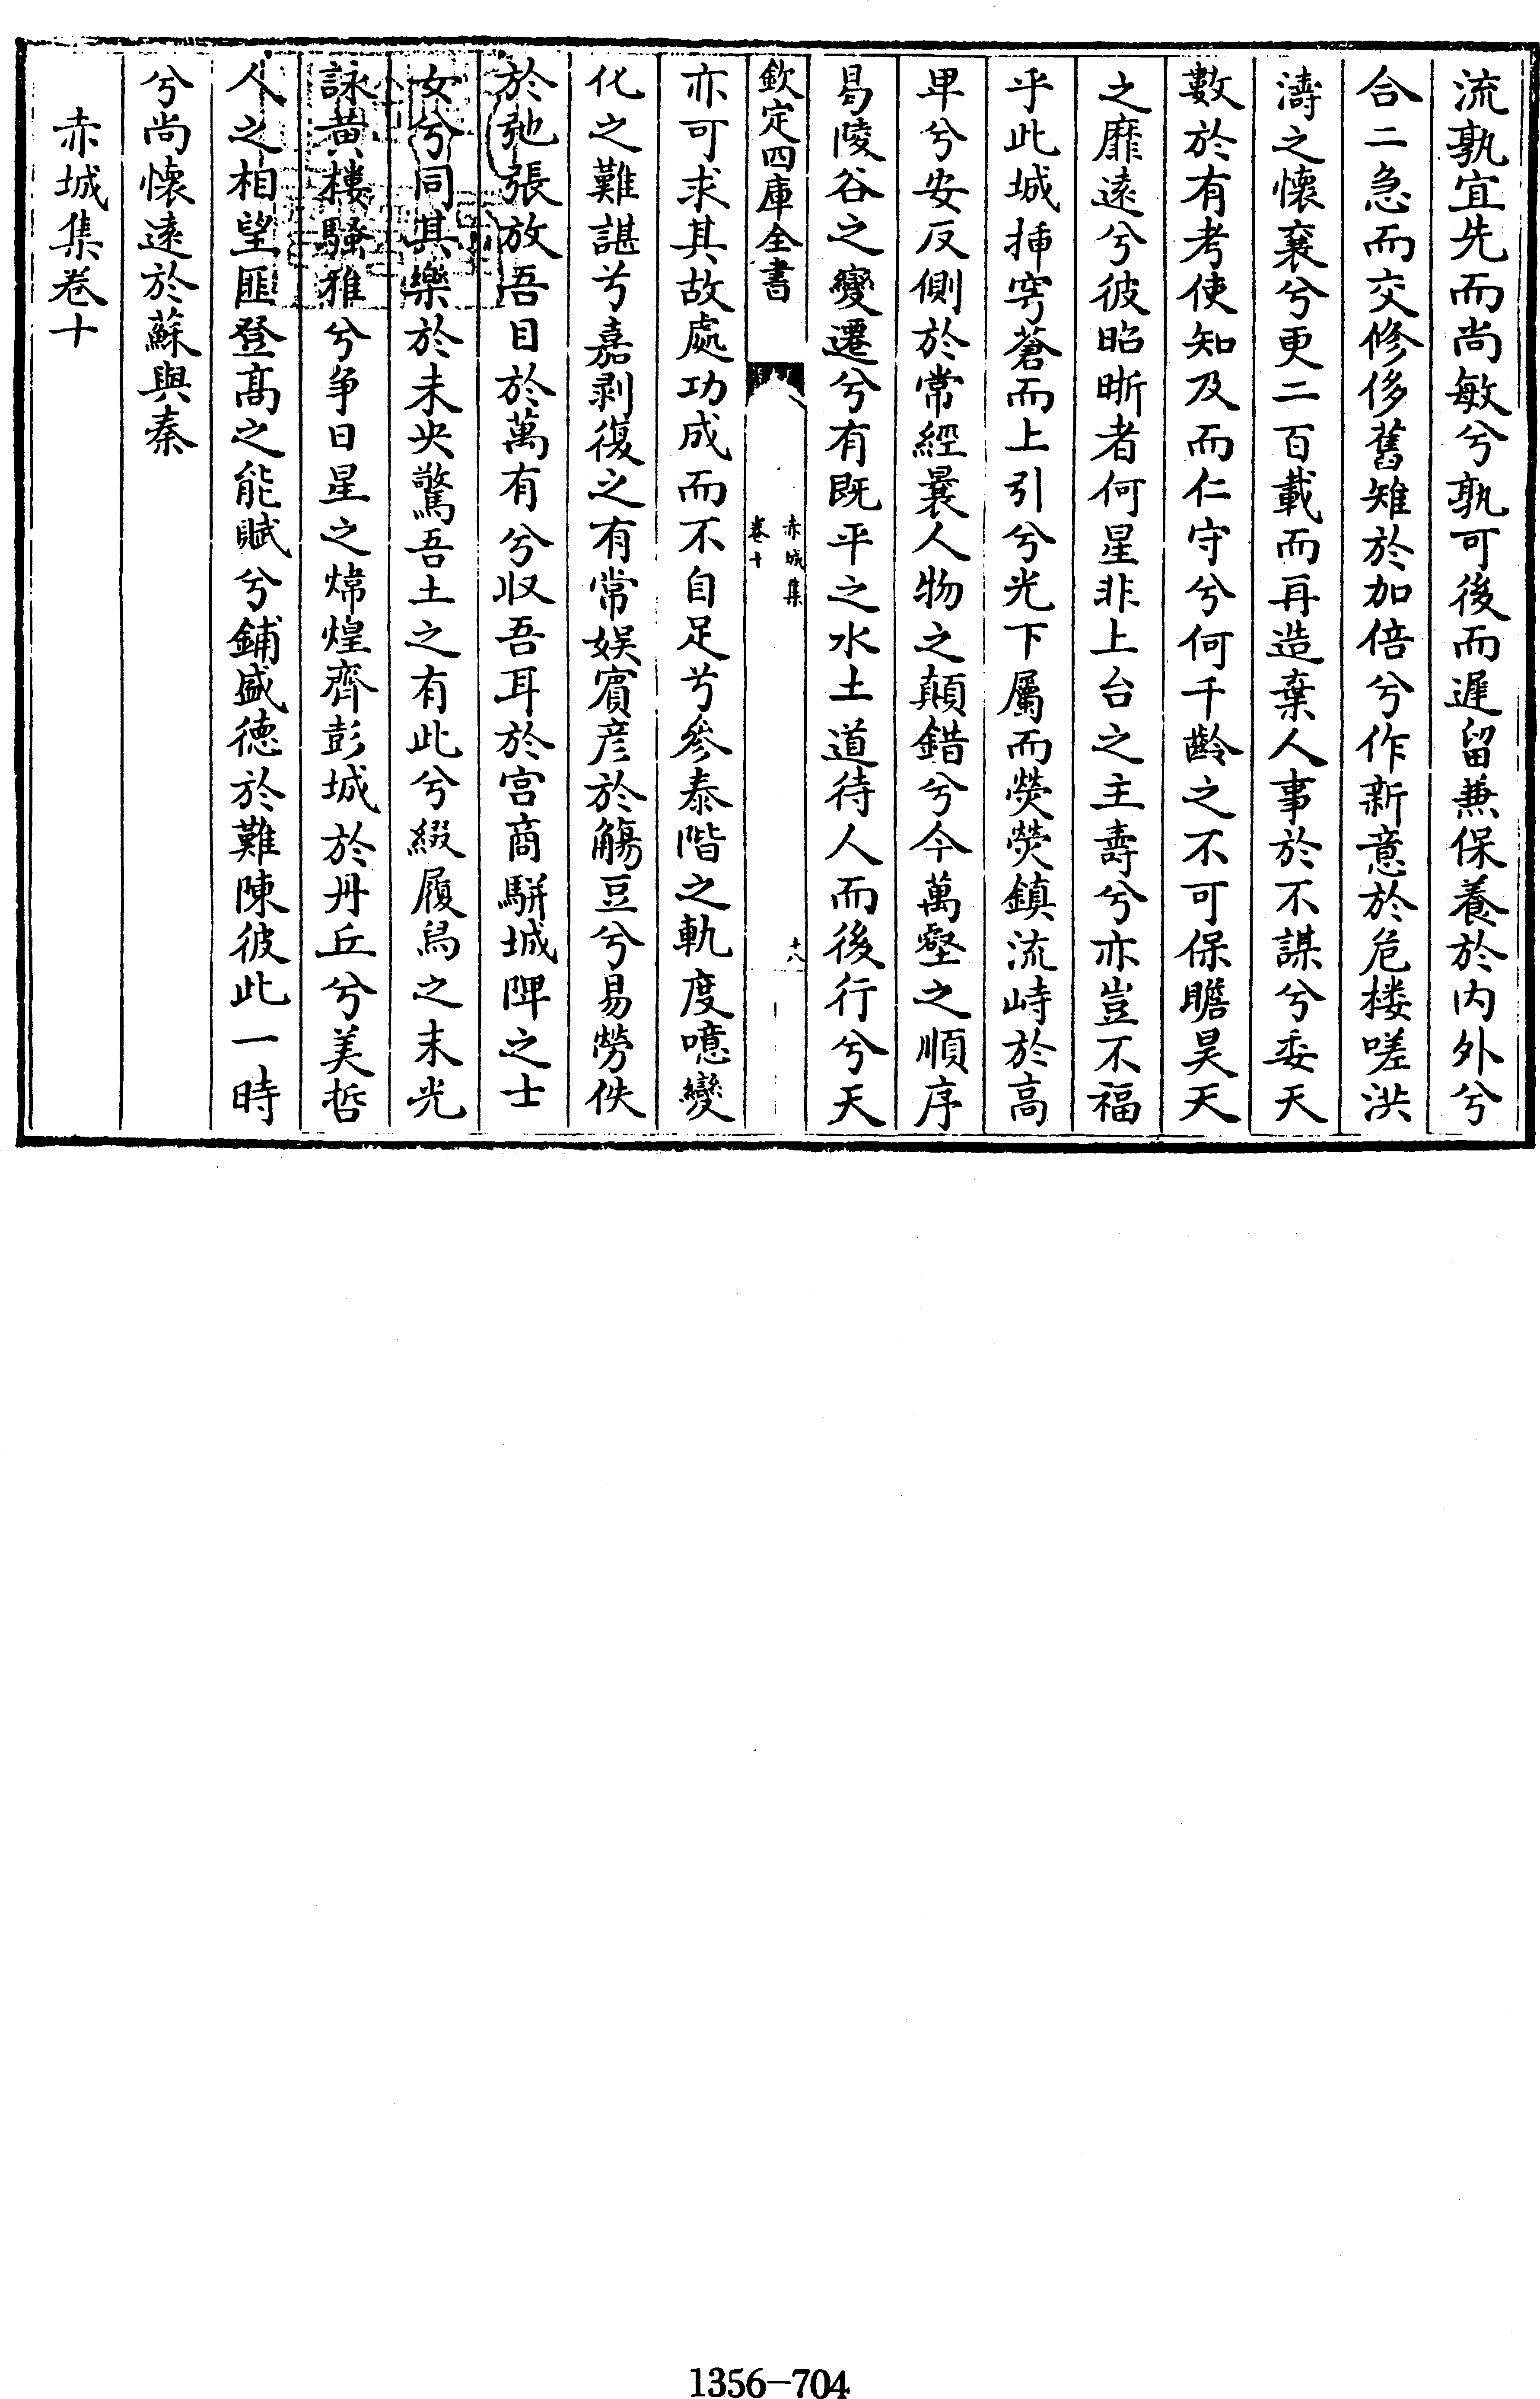 流孰宜先而尚敏兮孰可後而遲留兼保養於内外兮
合二急而交修侈舊雉於加倍兮作新意於危楼嗟洪
濤之懷襄兮更二百載而再造棄人事於不謀兮委天
數於有考使知及而仁守兮何千齡之不可保瞻昊天
之靡逺兮彼昭晣者何星非上台之主壽兮亦豈不福
乎此城挿穹蒼而上引兮光下屬而熒熒鎮流峙於高
卑兮安反側於常經曩人物之顛錯兮今萬壑之順序
曷陵谷之變遷兮有既平之水土道待人而後行兮天
欽定四庫全書
赤城集
卷十
十八
亦可求其故處功成而不自足兮參泰階之軌度噫變
化之難諶兮嘉剥復之有常娱賓彦於觴豆兮易勞佚
於弛張放吾目於萬有兮収吾耳於宫商駢城闉之士
女兮同其樂於未央驚吾土之有此兮綴履舄之末光
詠黄樓騷雅兮争日星之煒煌齊彭城於丹丘兮美哲
人之相望匪登髙之能賦兮鋪盛德於難陳彼此一時
兮尚懐逺於蘇與秦
赤城集卷十
1356-704